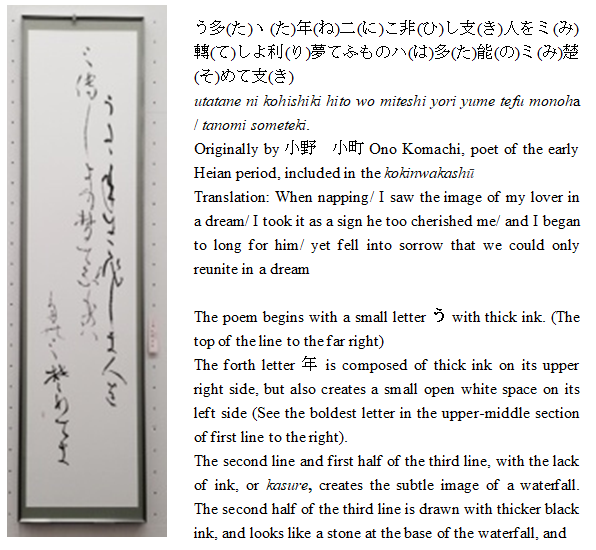 う多(た)ヽ(た)年(ね)二(に)こ非(ひ)し支(き)人をミ(み)
轉(て)しよ利(り)夢てふものハ(は)多(た)能(の)ミ(み)楚
(そ)めて支(き)
utatane ni kohishiki hito wo miteshi yori yume tefu monoha
/ tanomi someteki.
Originally by 小野　小町 Ono Komachi, poet of the early
Heian period, included in the kokinwakashū
Translation: When napping/ I saw the image of my lover in
a dream/ I took it as a sign he too cherished me/ and I began
to long for him/ yet fell into sorrow that we could only
reunite in a dream
The poem begins with a small letter う with thick ink. (The
top of the line to the far right)
The forth letter 年 is composed of thick ink on its upper
right side, but also creates a small open white space on its
left side (See the boldest letter in the upper-middle section
of first line to the right).
The second line and first half of the third line, with the lack
of ink, or kasure, creates the subtle image of a waterfall.
The second half of the third line is drawn with thicker black
ink, and looks like a stone at the base of the waterfall, and